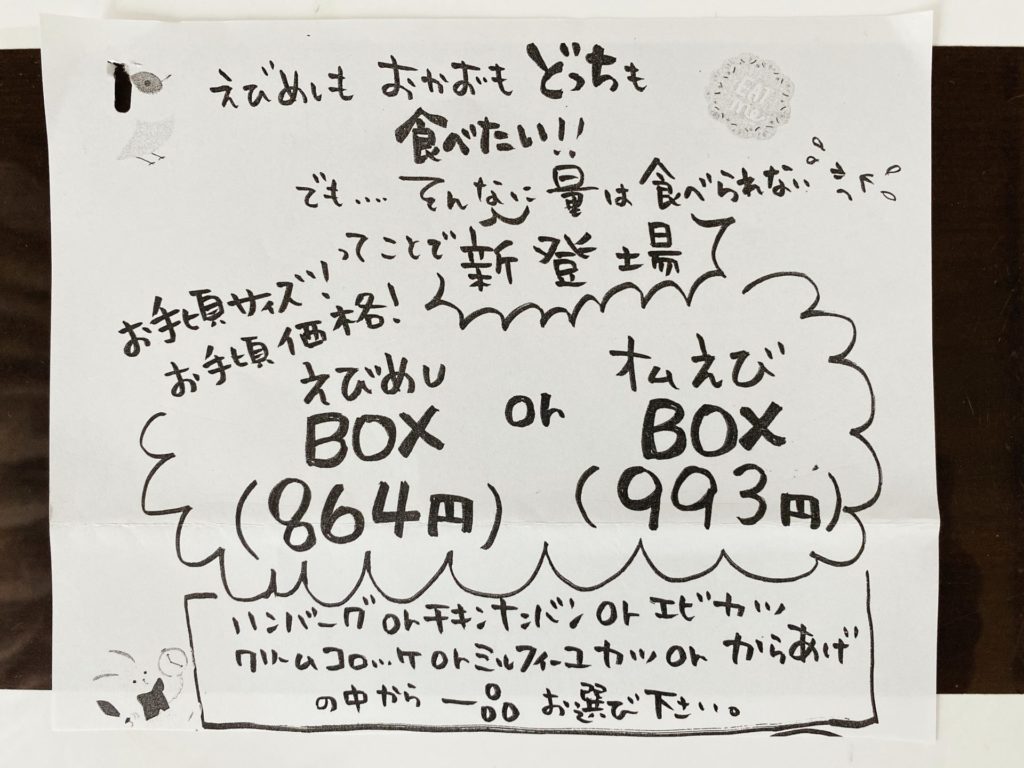 えびめしも おかずも どっちも
食べたい!!
でも.... そんなに量は食べられない
ってことで 新登場
お手頃サイズ!
お手頃価格!
えびめし
BOX
(864円)
or
オムえび
BOX
(993円)
ハンバーグorチキンナンバンorエビカツ
クリームコロッケorミルフィーユカツorからあげ
の中から 一品 お選び下さい。